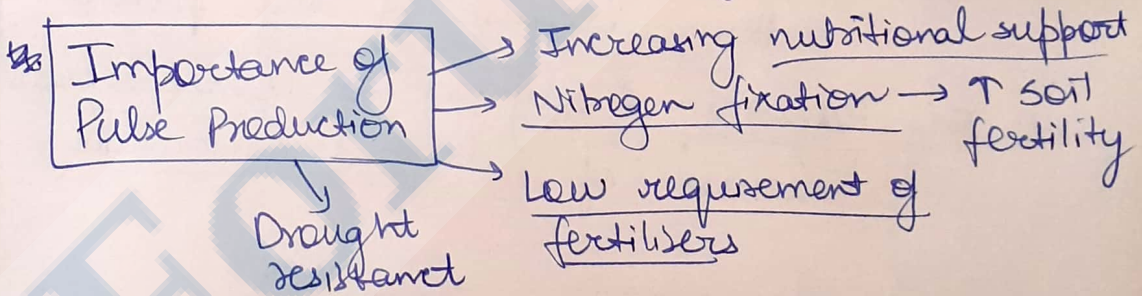 Importance of
Pulse Production
→ Increasing nutritional support
→ Nitrogen fixation → ↑ soil
fertility
→ Low requirement of
fertilisers
Drought
resistant